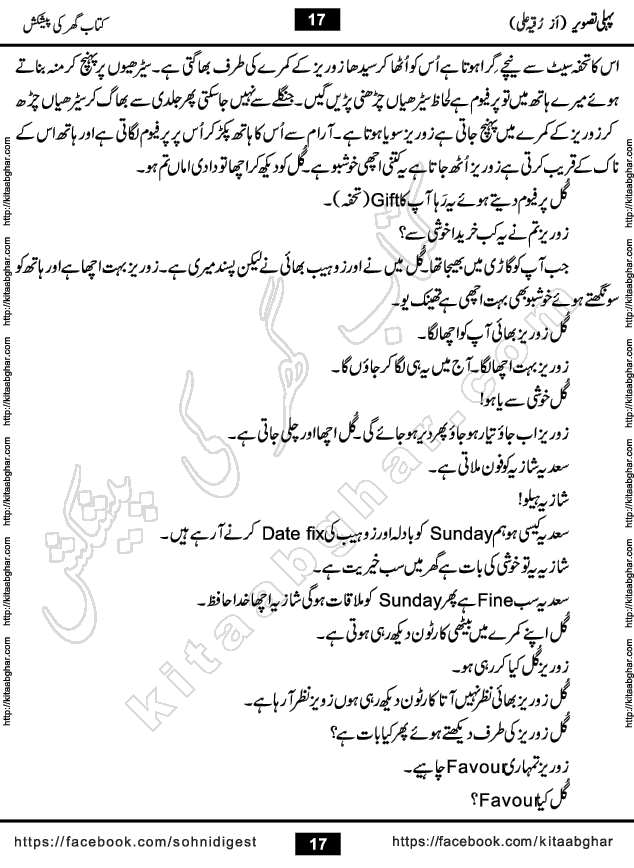 پہلی تصویر (از رُقیہ علی)
17
کتاب گھر کی پیشکش
اس کا تحفہ سیٹ سے نیچے گرا ہوتا ہے اُس کو اُٹھا کر سیدھا زوریز کے کمرے کی طرف بھاگتی ہے۔ سیڑھیوں پر پہنچ کر منہ بناتے
ہوئے میرے ہاتھ میں تو پرفیوم ہے لحاظ سیڑھیاں چڑھنی پڑیں گیں۔ جنگلے سے نہیں جاسکتی پھر جلدی سے بھاگ کر سیڑھیاں چڑھ
کر زوریز کے کمرے میں پہنچ جاتی ہے زوریز سویا ہوتا ہے۔ آرام سے اُس کا ہاتھ پکڑ کر اُس پر پرفیوم لگاتی ہے اور ہاتھ اس کے
ناک کے قریب کرتی ہے زوریز اُٹھ جاتا ہے یہ کتنی اچھی خوشبو ہے۔ گُل کو دیکھ کر اچھا تو دادی اماں تم ہو۔
گُل پرفیوم دیتے ہوئے یہ رَہا آپ کا Gift (تحفہ)۔
زوریز تم نے یہ کب خریدا خوشی سے؟
جب آپ کو گاڑی میں بھیجا تھا۔ گُل میں نے اور زوہیب بھائی نے لیکن پسند میری ہے۔ زوریز بہت اچھا ہے اور ہاتھ کو
سونگھتے ہوئے خوشبو بھی بہت اچھی ہے تھینک یو۔
گُل زوریز بھائی آپ کو اچھا لگا۔
زوریز بہت اچھا لگا۔ آج میں یہ ہی لگا کر جاؤں گا۔
گُل خوشی سے یاہو!
زوریز اب جاؤ تیار ہوجاؤ پھر دیر ہوجائے گی۔ گُل اچھا اور چلی جاتی ہے۔
سعدیہ شازیہ کو فون ملاتی ہے۔
شازیہ ہیلو!
سعدیہ کیسی ہو ہم Sunday کو بادلہ اور زوہیب کی Date fix کرنے آرہے ہیں۔
شازیہ یہ تو خوشی کی بات ہے گھر میں سب خیریت ہے۔
سعدیہ سب Fine ہے پھر Sunday کو ملاقات ہوگی شازیہ اچھا خدا حافظ۔
گُل اپنے کمرے میں بیٹھی کارٹون دیکھ رہی ہوتی ہے۔
زوریز گُل کیا کر رہی ہو۔
گُل زوریز بھائی نظر نہیں آتا کارٹون دیکھ رہی ہوں زوریز نظر آرہا ہے۔
گُل زوریز کی طرف دیکھتے ہوئے پھر کیا بات ہے؟
زوریز تمہاری Favour چاہیے۔
گُل کیا Favour؟
http://kitaabghar.com http://kitaabghar.com http://kitaabghar.com http://kitaabghar.com http://kitaabghar.com http://kitaabghar.com
http://kitaabghar.com http://kitaabghar.com http://kitaabghar.com http://kitaabghar.com http://kitaabghar.com http://kitaabghar.com
کتاب گھر کی پیشکش
kitaabghar.com
https://facebook.com/sohnidigest
17
https://facebook.com/kitaabghar